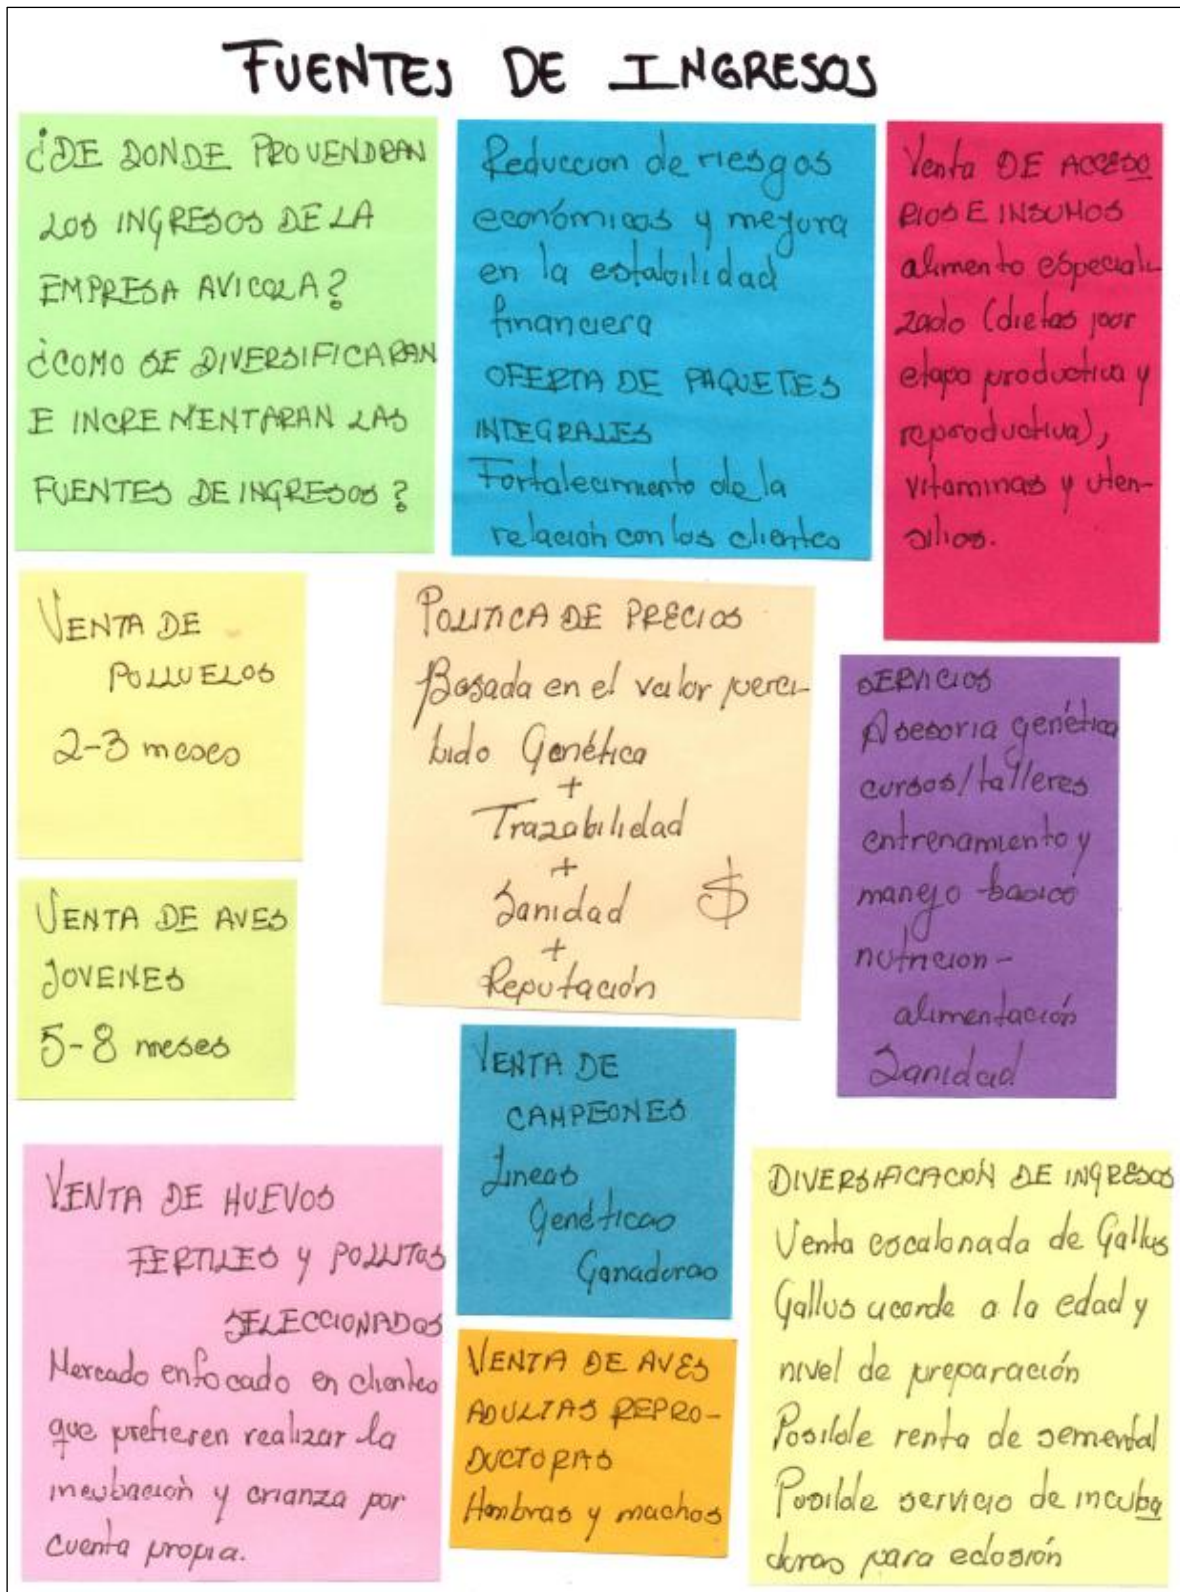 FUENTES DE INGRESOS
¿DE DONDE PROVENDRAN
LOS INGRESOS DE LA
EMPRESA AVICOLA?
¿COMO SE DIVERSIFICARAN
E INCREMENTARAN LAS
FUENTES DE INGRESOS?
Reduccion de riesgos
económicos y mejora
en la estabilidad
financiera
OFERTA DE PAQUETES
INTEGRALES
Fortalecimiento de la
relación con los clientes
Venta DE ACCESO
RIOS E INSUMOS
alimento especiali-
zado (dietas por
etapa productiva y
reproductiva),
vitaminas y uten-
silios.
VENTA DE
POLLUELOS
2-3 meses
POLITICA DE PRECIOS
Basada en el valor perci-
bido Genética
+
Trazabilidad
+
Sanidad $
+
Reputación
SERVICIOS
Asesoria genética
cursos/talleres
entrenamiento y
manejo basico
nutricion-
alimentación
Sanidad
VENTA DE AVES
JOVENES
5-8 meses
VENTA DE
CAMPEONES
Líneas
Genéticas
Ganadoras
VENTA DE HUEVOS
FERTILES y POLLITOS
SELECCIONADOS
Mercado enfocado en clientes
que prefieren realizar la
incubación y crianza por
cuenta propia.
VENTA DE AVES
ADULTAS REPRO-
DUCTORAS
Hembras y machos
DIVERSIFICACIÓN DE INGRESOS
Venta escalonada de Gallus
Gallus acorde a la edad y
nivel de preparación
Posible renta de semental
Posible servicio de incuba
doras para eclosión